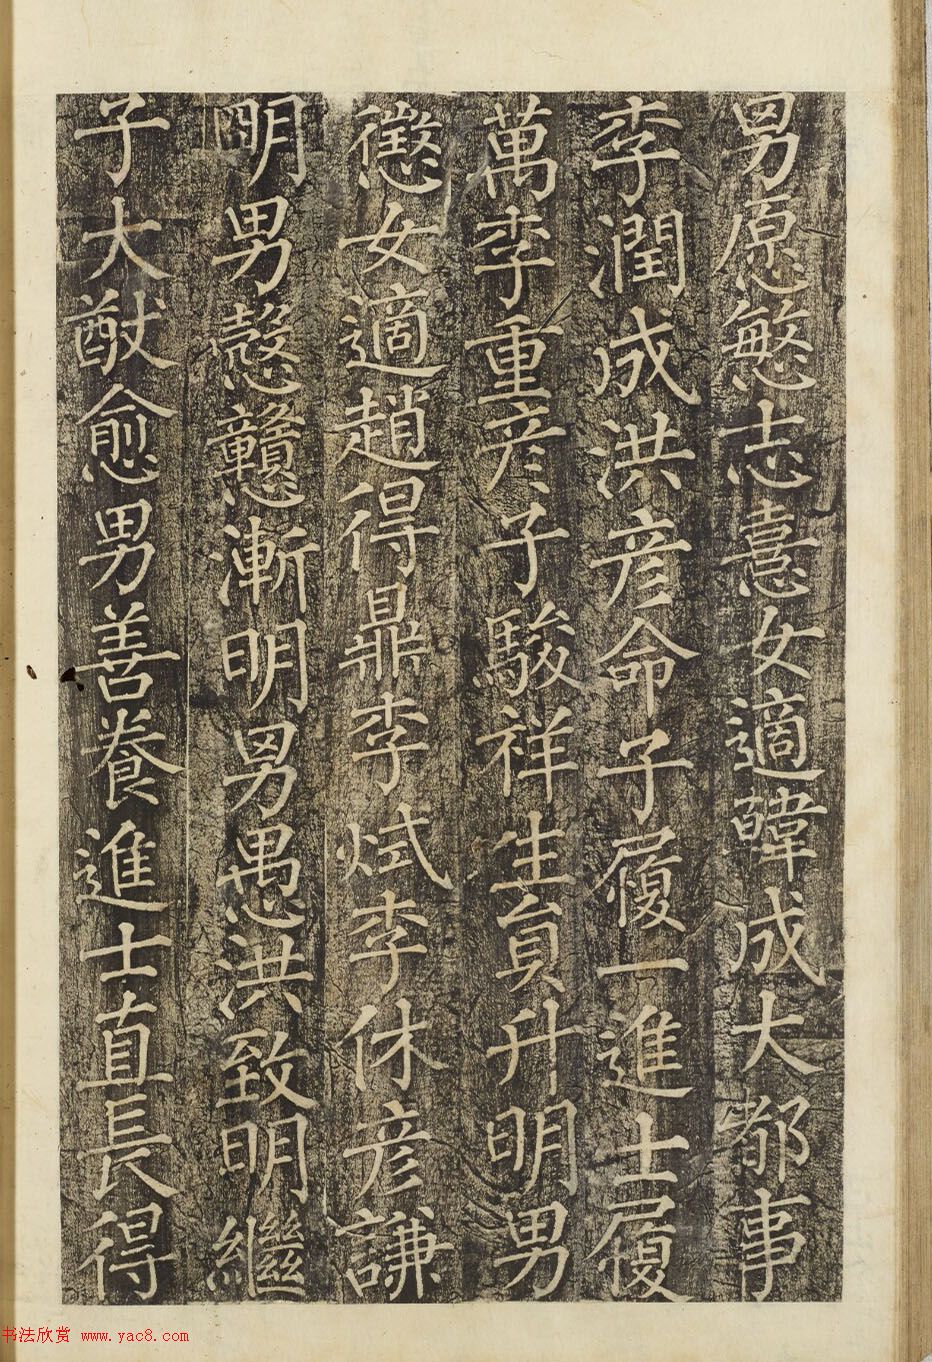 男愿慜志憙女適韓成大都事
李潤成洪彦命子履一進士履
萬李重彦子駿祥生員升明男
懲女適趙得鼎李烒李休彦謙
明男慤戇漸明男愚洪致明繼
子大猷愈男善養進士直長得
书法欣赏 www.yac8.com